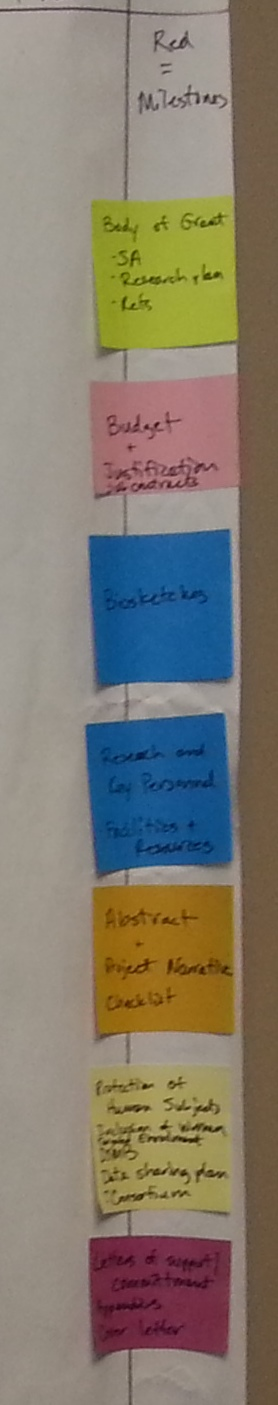 Red
=
Milestones
Body of Grant
-SA
-Research plan
-Refs
Budget
+
Justification
contracts
Biosketches
Research and
Key Personnel
Facilities +
Resources
Abstract
+
Project Narrative
Checklist
Protection of
Human Subjects
Inclusion of Women
Enrollment
Data sharing plan
Consortium
Letters of support/
commitment
Appendices
Cover letter